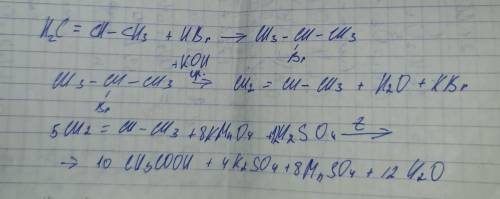 H₂C = CH – CH₃ + HBr → CH₃ – CH – CH₃
Br
+KOH
CH₃ – CH – CH₃ → CH₂ = CH – CH₃ + H₂O + KBr
Br
5CH₂ = CH – CH₃ + 8KMnO₄ + H₂SO₄ t→
→ 10 CH₃COOH + 4K₂SO₄ + 8MnSO₄ + 12 H₂O